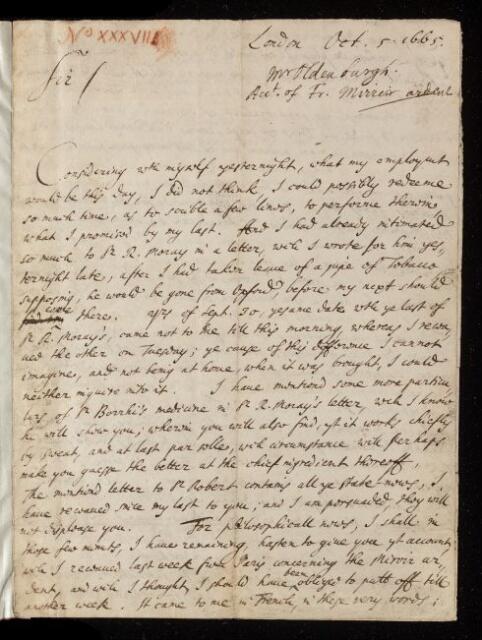 No XXXVIII
London Oct. 5. 1665.
Mr Oldenburgh.
Acct. of Fr. Mirroir ardent
Sir /
Considering wth myself yesternight, what my employmt
would be this day, I did not think, I could possibly redeeme
so much time, as to scrible a few lines, to performe therwin
what I promised by my last. And I had already intimated
so much to Sr R. Moray in a letter, wch I wrote for him yes,
ternight late, after I had taken leave of a pipe of Tobacco
supposing, he would be gone from Oxford, before my next should
come there. yrs of Sept. 30, ye same date wth ye last of
Sr R. Moray's, came not to me till this morning, whereas I recei,
ued the other on Tuesday; ye cause of this difference I cannot
imagine, and not being at home, when it was brought, I could
neither inquire into it. I have mentiond some more particu,
lars of Sr Borrhi's medicine in Sr R. Moray's letter, wch I know
he will show you; wherein you will also find, yt it works chiefly
by sweat, and at last par selles, wch circumstance will perhaps
make you guesse the better at the chief ingredient thereoff.
The mentiond letter to Sr Robert contains all ye state-news, I
have receaued since my last to you; and I am persuaded, they will
not displease you. For philosophicall news, I shall in
those few minuts, I have remaining, hasten to give you yt account,
wch I receaued last week from Paris concerning the Miroir ar,
dent, and wch I thought, I should have been obliged to putt off till
another week. It came to me in French, in these very words;